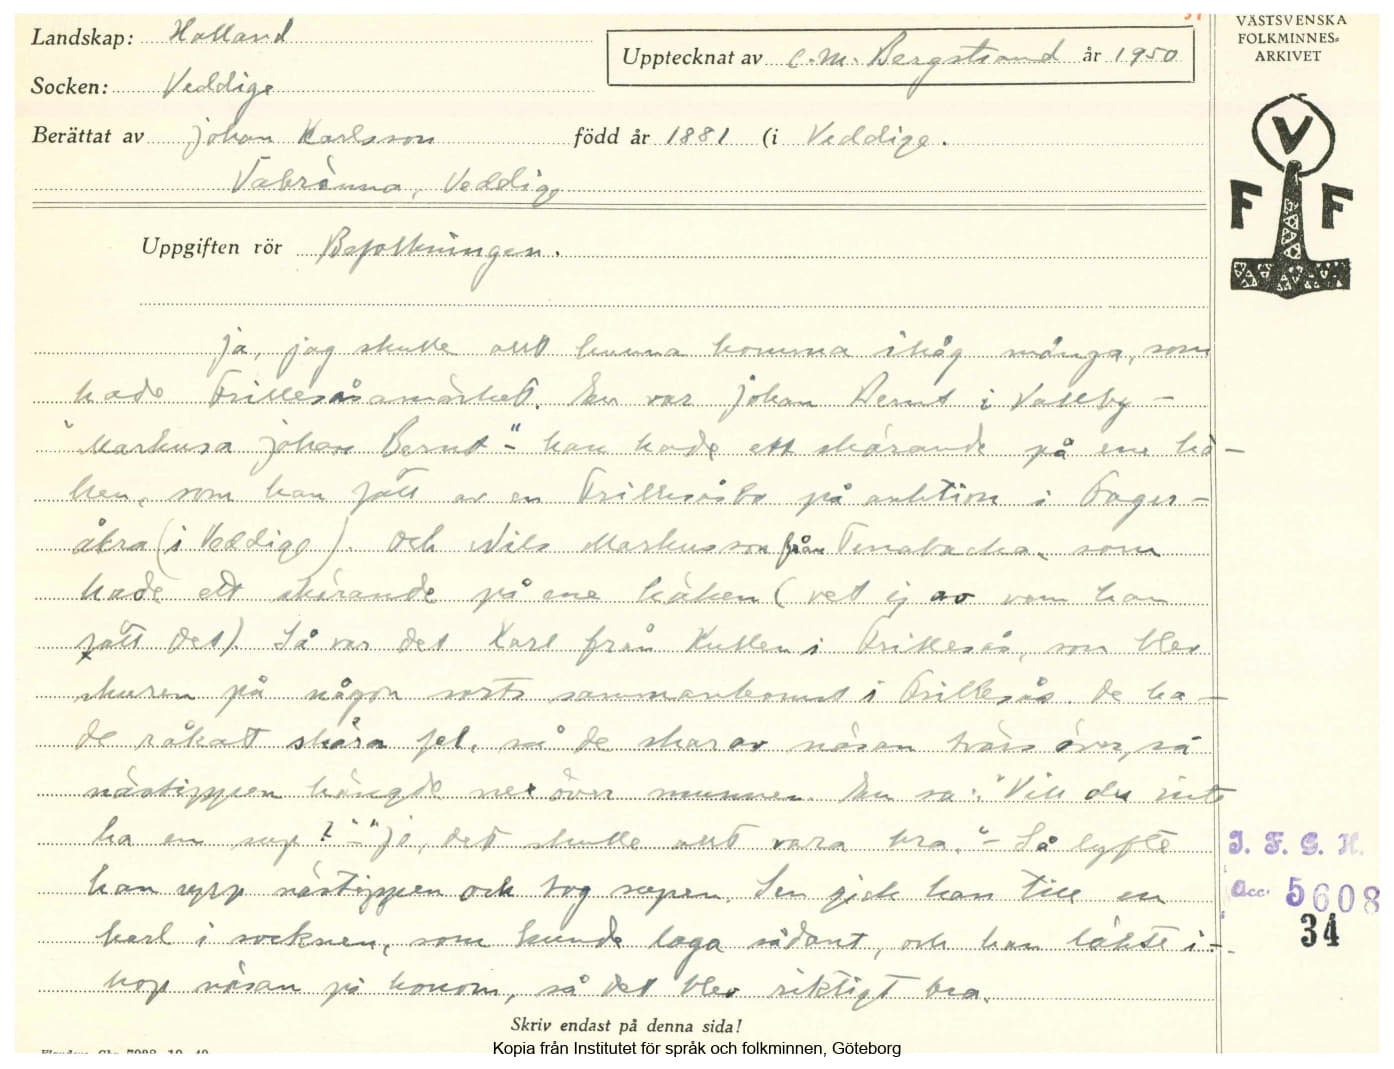 Landskap: Halland
Upptecknat av C. M. Bergstrand år 1950
Socken: Veddige
Berättat av Johan Karlsson född år 1881 (i Veddige.
Vabränna, Veddige
Uppgiften rör Befolkningen.
VÄSTSVENSKA
FOLKMINNES-
ARKIVET
V
F F
Ja, jag skulle allt kunna komma ihåg många, som
hade Frillesåsamärket. En var Johan Bernt i Vallby –
"Markusa Johan Bernt –" han hade ett skårande på ene kä-
ken, som han fått av en Frillesåsbo på auktion i Fager-
åkra (i Veddige). Och Nils Markusson från Tenabacka, som
hade ett skårande på ene käken (vet ej av vem han
fått det). Så var det Karl från Kullen i Frillesås, som blev
skuren på någon sorts sammankomst i Frillesås. De ha-
de råkat skära fel, så de skar av näsan tvärs över, så
nästippen hängde ner över munnen. En sa: "Vill du inte
ha en sup?" – "Jo, det skulle allt vara bra." – Så lyfte
han upp nästippen och tog supen. Sen gick han till en
karl i socknen, som kunde laga sådant, och han läkte i-
hop näsan på honom, så det blev riktigt bra.
I. F. G. H.
Acc. 5608
34
Skriv endast på denna sida!
Kopia från Institutet för språk och folkminnen, Göteborg